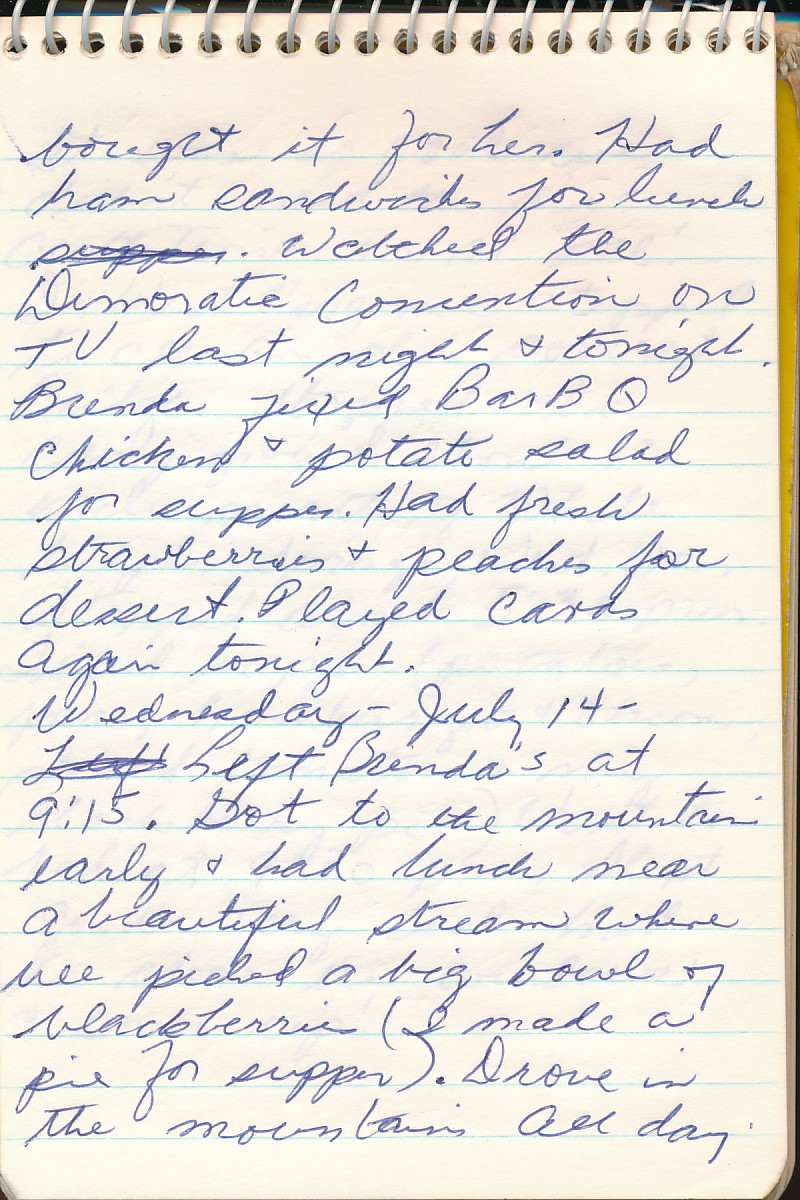 bought it for her. Had
ham sandwiches for lunch
supper. Watched the
Dimoratic Convention on
TV last night & tonight.
Brenda fixed BarBQ
Chicken & potato salad
for supper. Had fresh
strawberries & peaches for
dessert. Played Cards
again tonight.
Wednesday - July 14 -
Left Left Brenda's at
9:15. Got to the mountains
early & had lunch near
a beautiful stream where
we picked a big bowl of
blackberries (I made a
pie for supper). Drove in
the mountains all day.